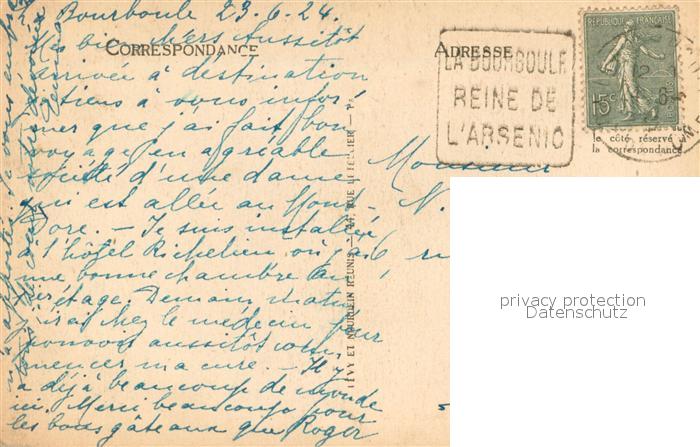 La Bourboule 23.6.24.
Mes bien chers Aussitôt
CORRESPONDANCE
arrivée à destination
tiens à vous infor-
mer que j'ai fait bon
voyage en agréable
société d'une dame
qui est allée au Mont-
Dore. - Je suis installée
à l'hôtel Richelieu où j'ai
une bonne chambre au
1er étage. Demain matin
j'irai chez le médecin pour
pouvoir aussitôt com-
mencer ma cure. - Il y
a déjà beaucoup de monde
ici. Merci beaucoup pour
les bons gâteaux que Roger
m'a apportés
LÉVY ET NEURDEIN RÉUNIS
ADRESSE
LA BOURBOULE
REINE DE
L'ARSENIC
REPUBLIQUE FRANÇAISE
15c
le côté réservé à
la correspondance.
Monsieur
N.
6 ru
privacy protection
Datenschutz